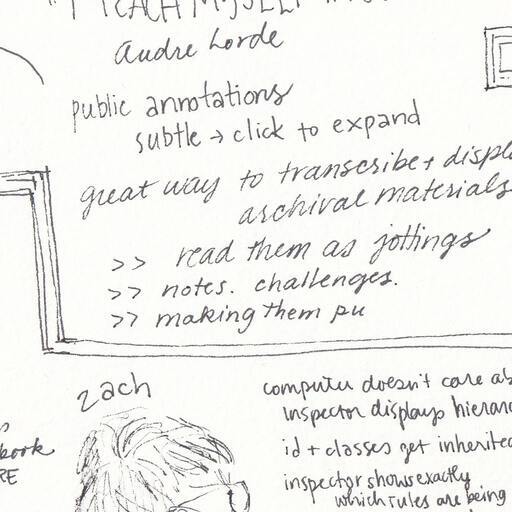 "I TEACH MYSELF
Audre Lorde
public annotations
subtle → click to expand
great way to transcribe + displ
archival materials
>> read them as jottings
>> notes. challenges.
>> making them pu
zach
computer doesn't care ab
inspector displays hierar
book
RE
id + classes get inherited
inspector shows exactly
which rules are being